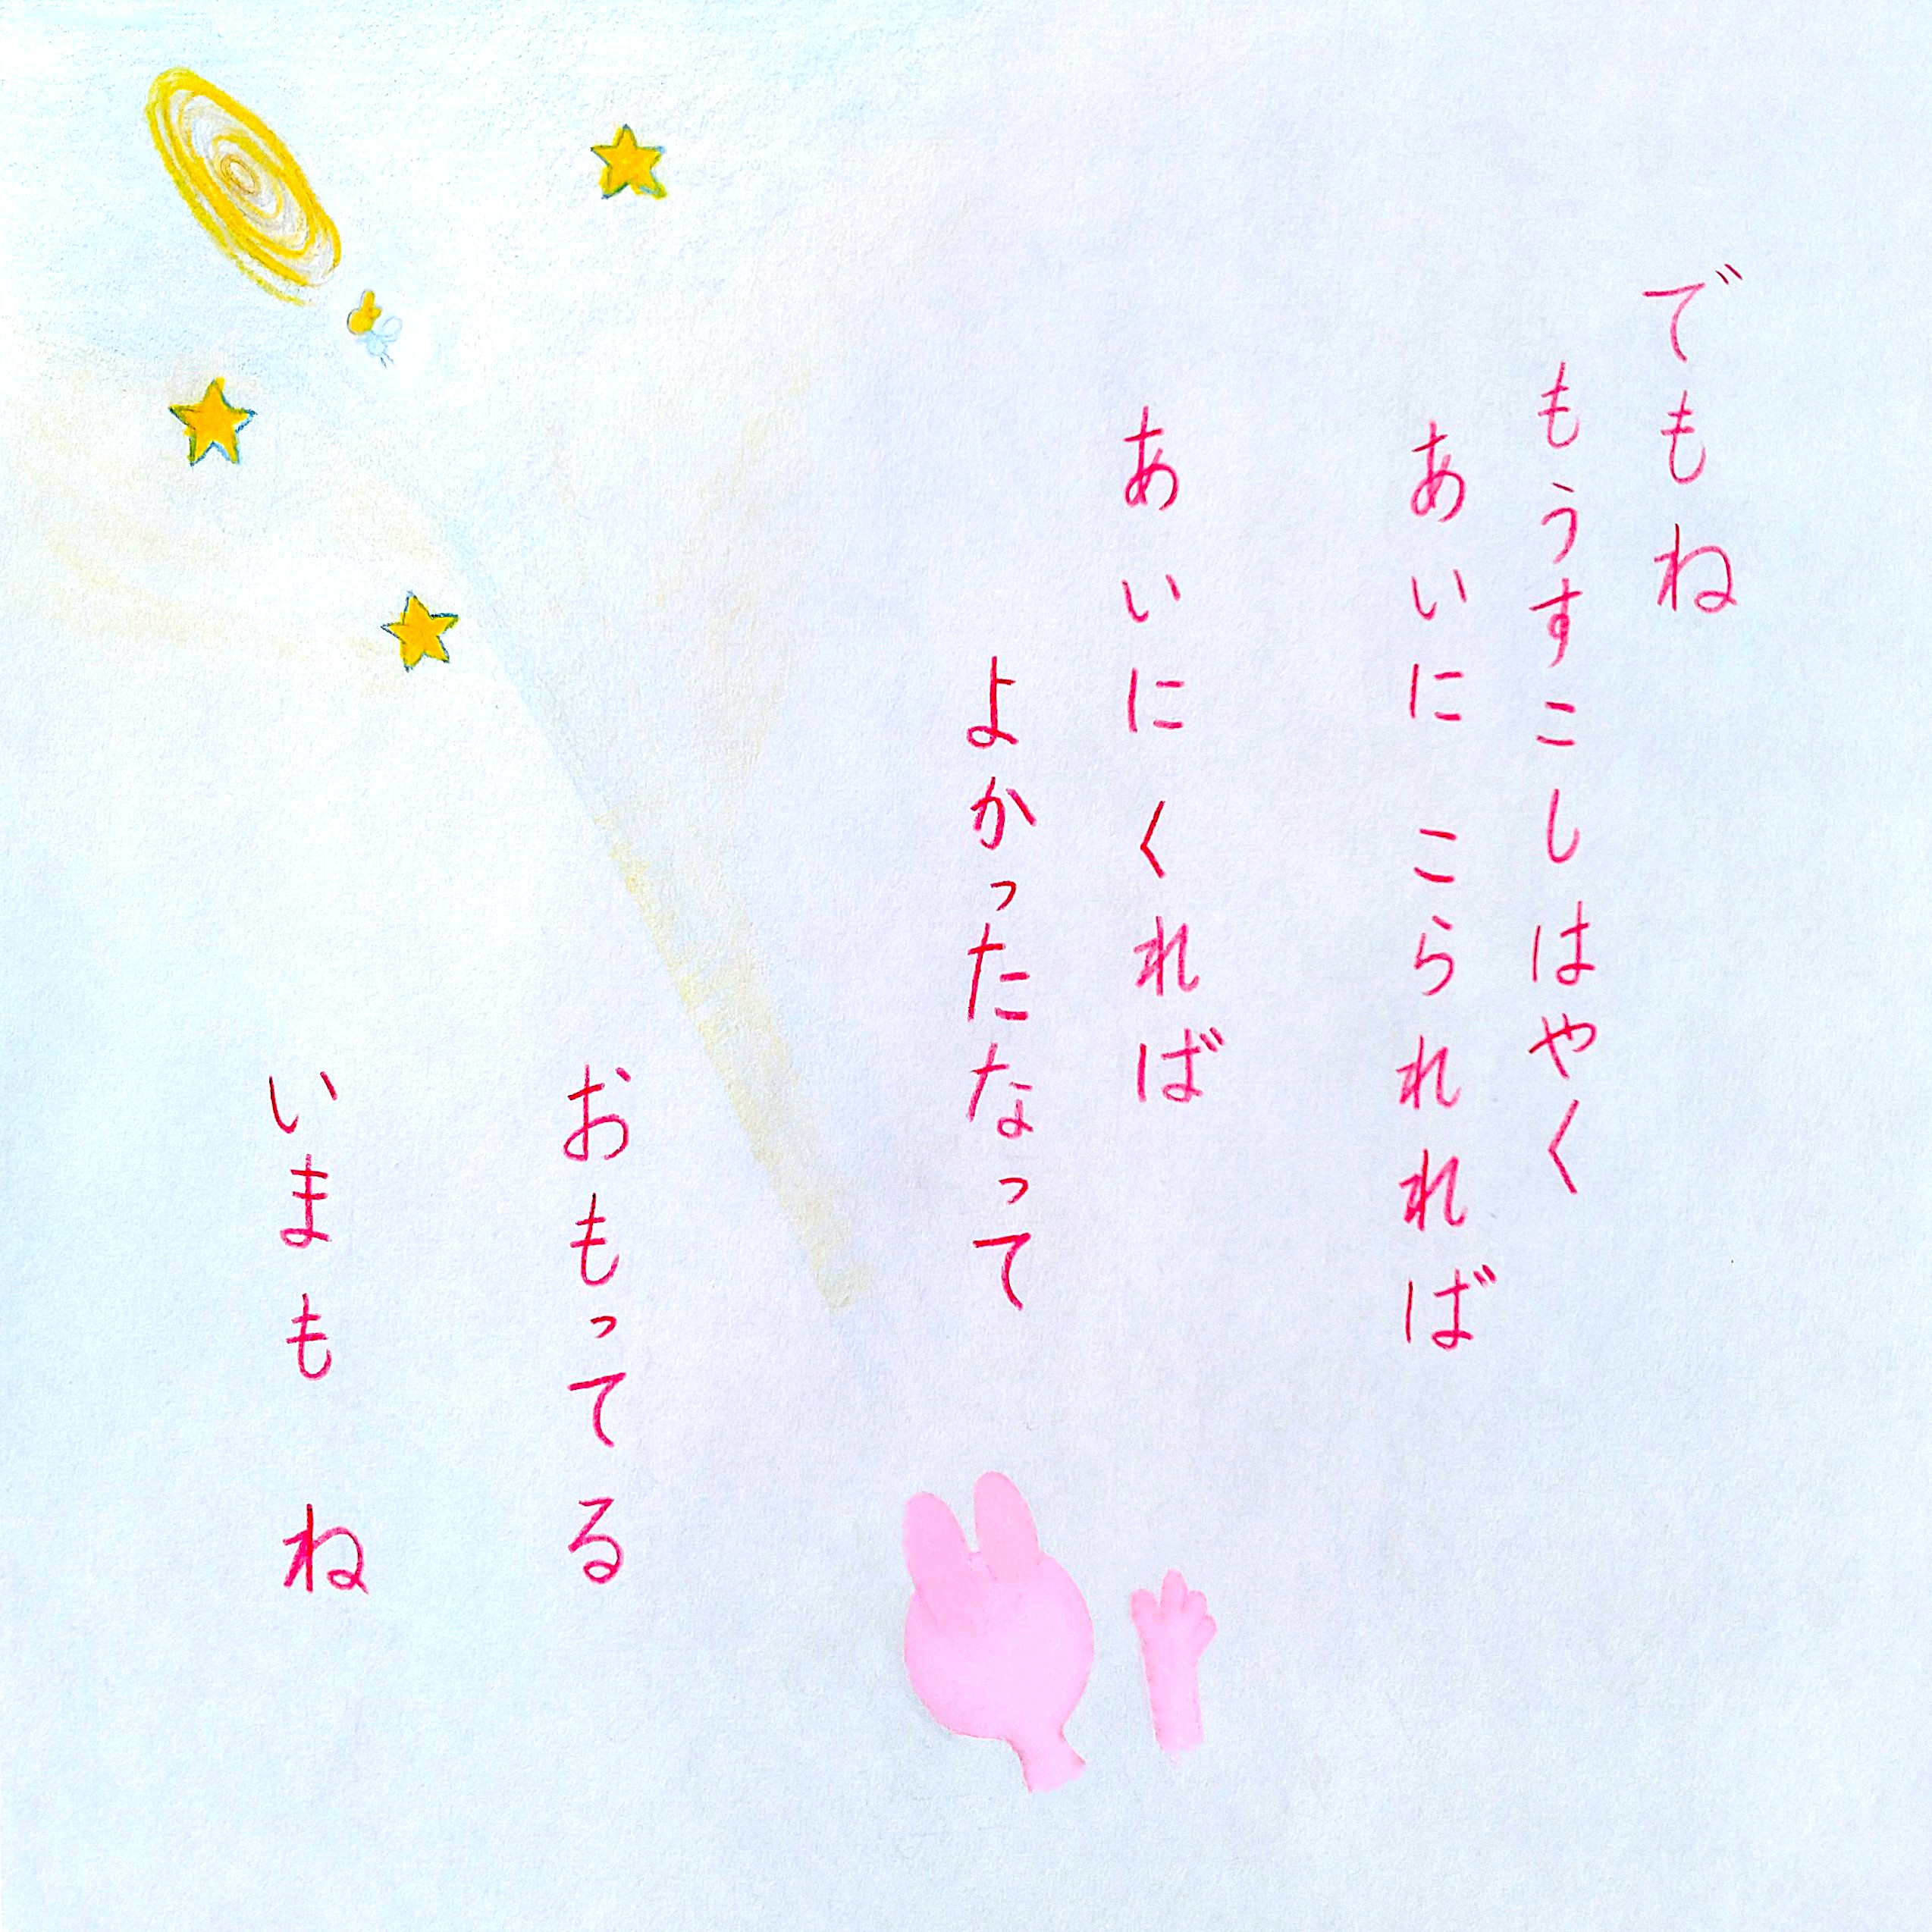 でもね
もうすこしはやく
あいにこられれば
あいにくれば
よかったなって
おもってる
いまもね